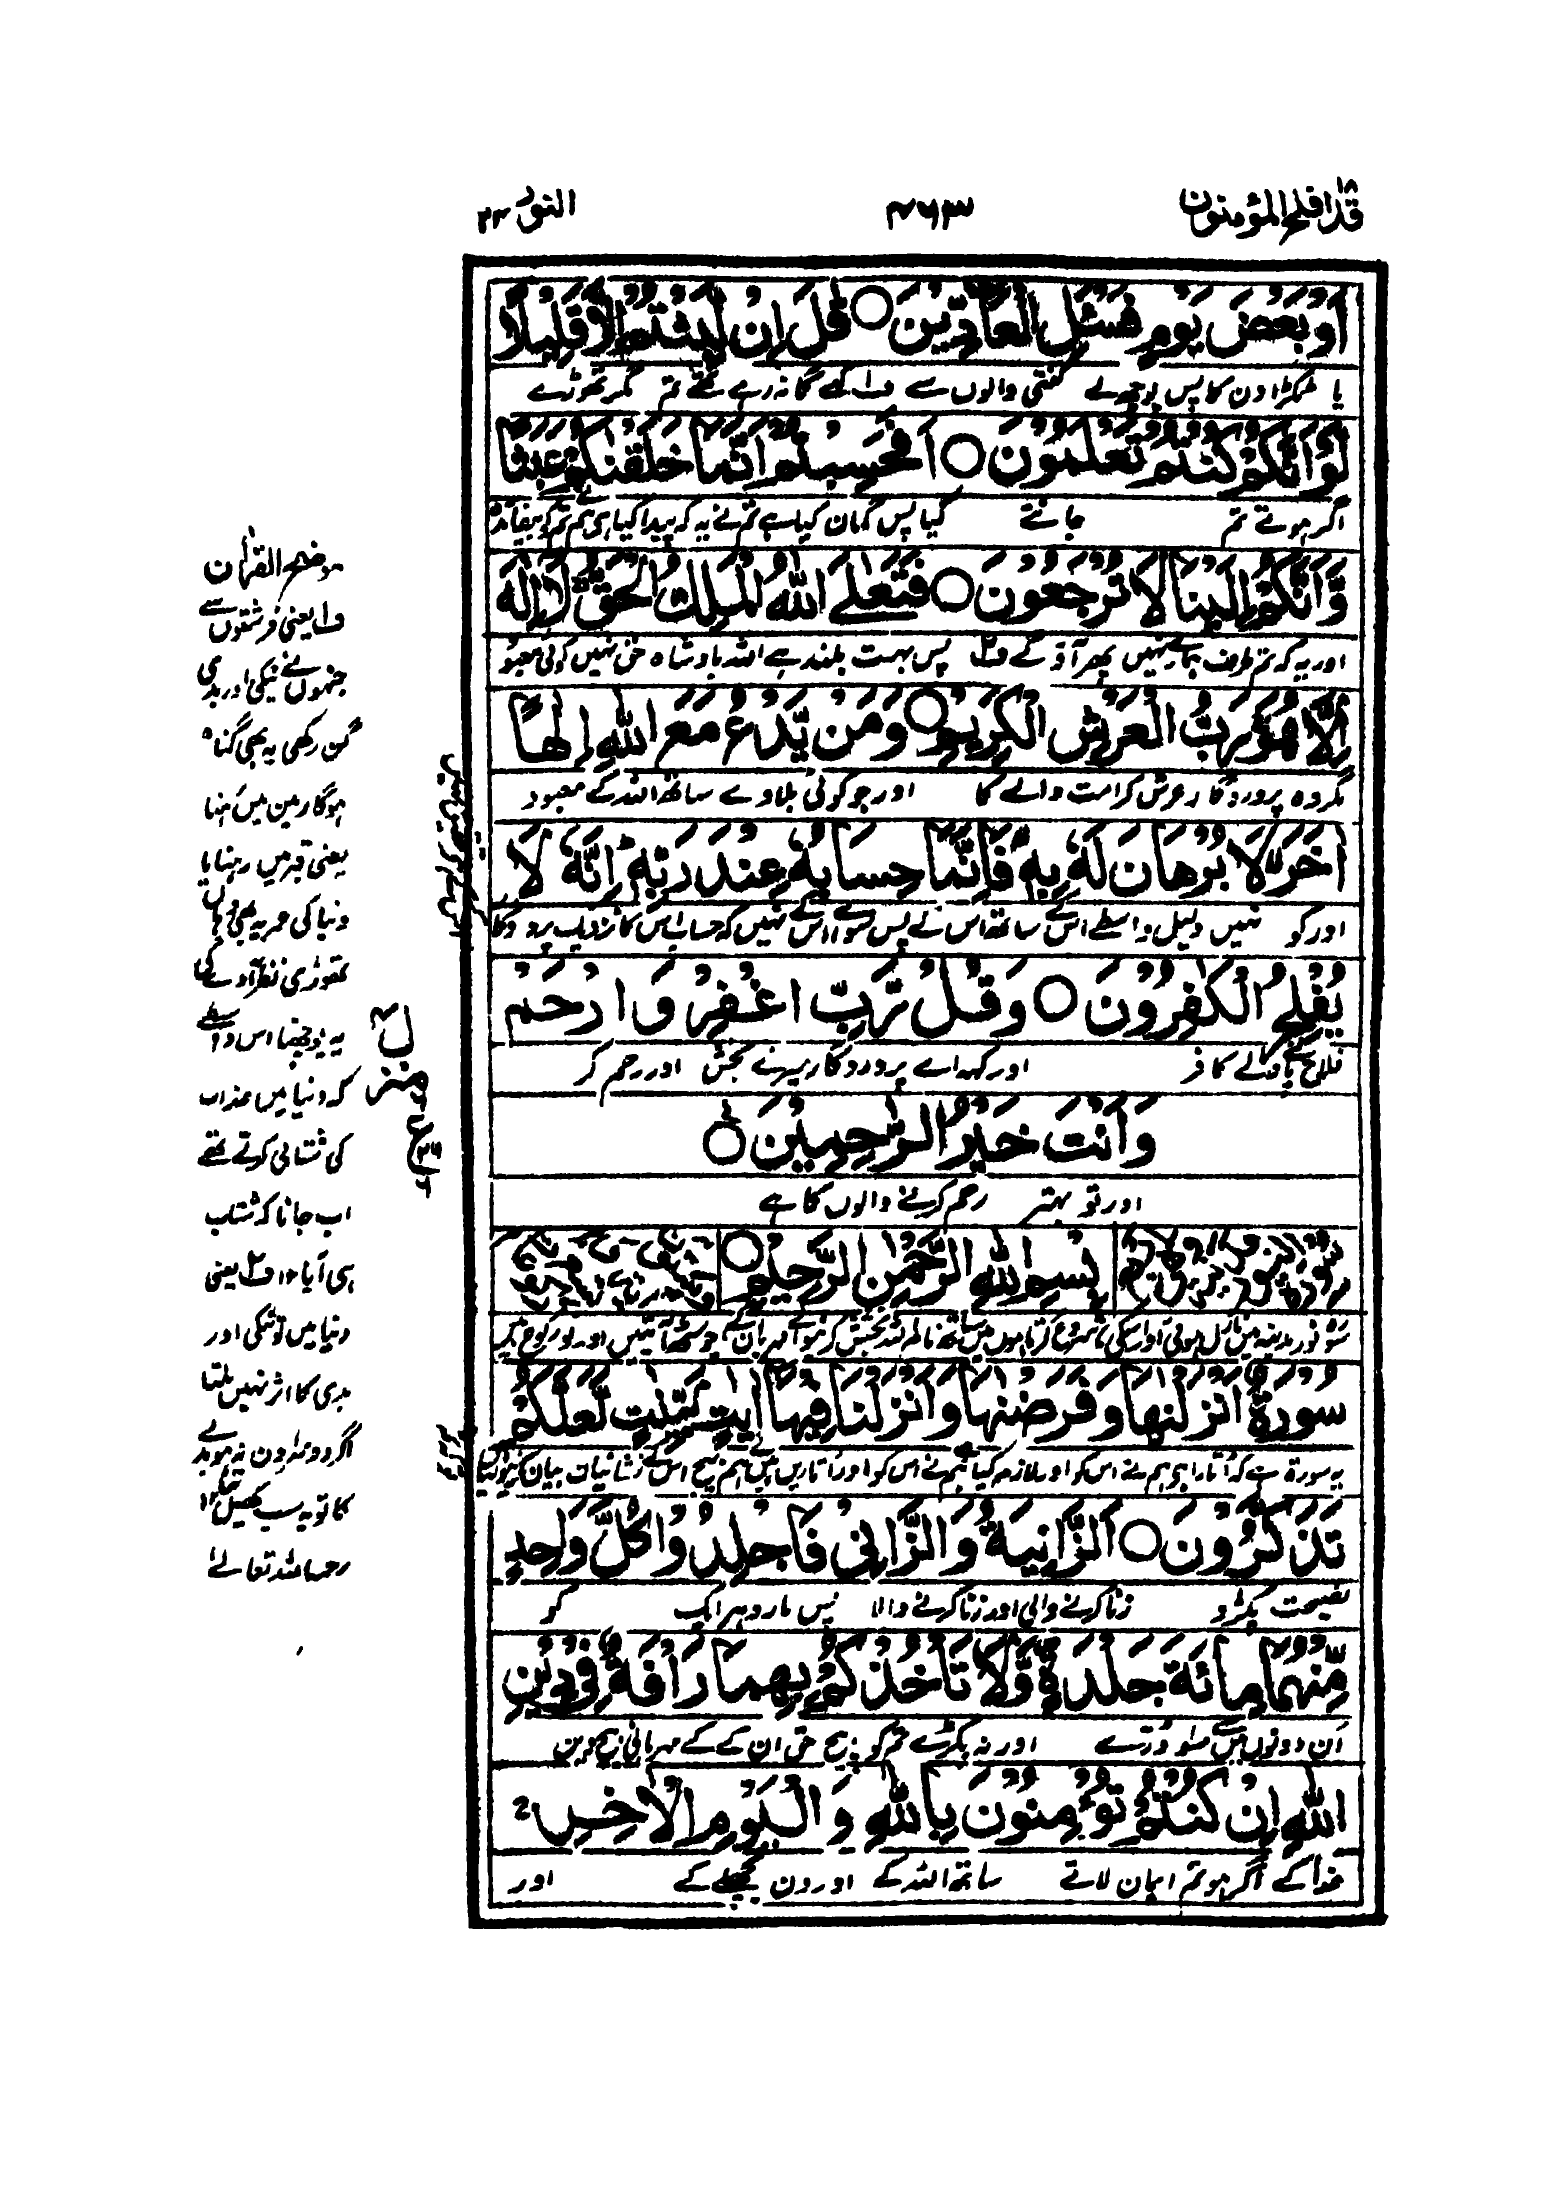 قد افلح المؤمنون ١٨
٤٦٣
النور ٢٤
اَوْ بَعْضَ يَوْمٍ فَسْـَٔلِ الْعَآدِّيْنَ ○ قٰلَ اِنْ لَّبِثْتُمْ اِلَّا قَلِيْلًا
یا ٹکڑا دن کا پس پوچھ لے گنتی والوں سے ف۱ کہے گا نہ رہے تھے تم مگر تھوڑے
لَّوْ اَنَّكُمْ كُنْتُمْ تَعْلَمُوْنَ ○ اَفَحَسِبْتُمْ اَنَّمَا خَلَقْنٰكُمْ عَبَثًا
اگر ہوتے تم جانتے کیا پس گمان کیا ہے تم نے یہ کہ پیدا کیا ہی ہم نے تم کو بیفائدہ
وَّاَنَّكُمْ اِلَيْنَا لَا تُرْجَعُوْنَ ○ فَتَعٰلَى اللّٰهُ الْمَلِكُ الْحَقُّ لَآ اِلٰهَ
اور یہ کہ تم طرف ہمارے نہیں پھر آؤ گے ف۲ پس بہت بلند ہے اللہ بادشاہ حق نہیں کوئی معبود
اِلَّا هُوَ رَبُّ الْعَرْشِ الْكَرِيْمِ ○ وَمَنْ يَّدْعُ مَعَ اللّٰهِ اِلٰهًا
مگر وہ پروردگار عرش کرامت والے کا اور جو کوئی بلاوے ساتھ اللہ کے معبود
اٰخَرَ لَا بُرْهَانَ لَهٗ بِهٖ فَاِنَّمَا حِسَابُهٗ عِنْدَ رَبِّهٖ اِنَّهٗ لَا
اور کو نہیں دلیل واسطے اس کے ساتھ اس کے پس سوائے اس کے نہیں کہ حساب اس کا نزدیک
يُفْلِحُ الْكٰفِرُوْنَ ○ وَقُلْ رَّبِّ اغْفِرْ وَارْحَمْ
فلاح پاتے کافر اور کہہ اے پروردگار میرے بخش اور رحم کر
وَاَنْتَ خَيْرُ الرّٰحِمِيْنَ ○
اور تو بہتر رحم کرنے والوں کا ہے
بِسْمِ اللّٰهِ الرَّحْمٰنِ الرَّحِيْمِ ○
سُوْرَةٌ اَنْزَلْنٰهَا وَفَرَضْنٰهَا وَاَنْزَلْنَا فِيْهَآ اٰيٰتٍۢ بَيِّنٰتٍ لَّعَلَّكُمْ
یہ سورۃ ہے کہ اتارا ہی ہم نے اس کو اور لازم کیا ہم نے اس کو اور اتاریں ہیں ہم نے بیچ اس کے نشانیاں بیان کرنیوالیاں
تَذَكَّرُوْنَ ○ اَلزَّانِيَةُ وَالزَّانِيْ فَاجْلِدُوْا كُلَّ وَاحِدٍ
نصیحت پکڑو زنا کرنے والی اور زنا کرنے والا پس مارو ہر ایک کو
مِّنْهُمَا مِائَةَ جَلْدَةٍ وَّلَا تَاْخُذْكُمْ بِهِمَا رَاْفَةٌ فِيْ دِيْنِ
ان دونوں میں سے سو درے اور نہ پکڑے تم کو بیچ حق ان کے کے مہربانی بیچ دین
اللّٰهِ اِنْ كُنْتُمْ تُؤْمِنُوْنَ بِاللّٰهِ وَالْيَوْمِ الْاٰخِرِ
خدا کے اگر ہو تم ایمان لاتے ساتھ اللہ کے اور دن پچھلے کے اور
منزل ٤
موضح القرآن
ف۱ یعنی فرشتوں سے
جنہوں نے نیکی اور بدی
گن رکھی یہ بھی گنا
ہوگا زمین میں رہنا
یعنی قبر میں رہنا یا
دنیا کی عمر یہ بھی وہاں
تھوڑی نظر آوے گی
یہ پوچھنا اس واسطے
کہ دنیا میں عذاب
کی شتابی کرتے تھے
اب جانا کہ شتاب
ہی آیا ۱۲ ف۲ یعنی
دنیا میں تو نیکی اور
بدی کا اثر نہیں ملتا
اگر دوسرا دن نہ ہو بدلے
کا تو یہ سب کھیل تھا ۱۲
رحمہ اللہ تعالےٰ